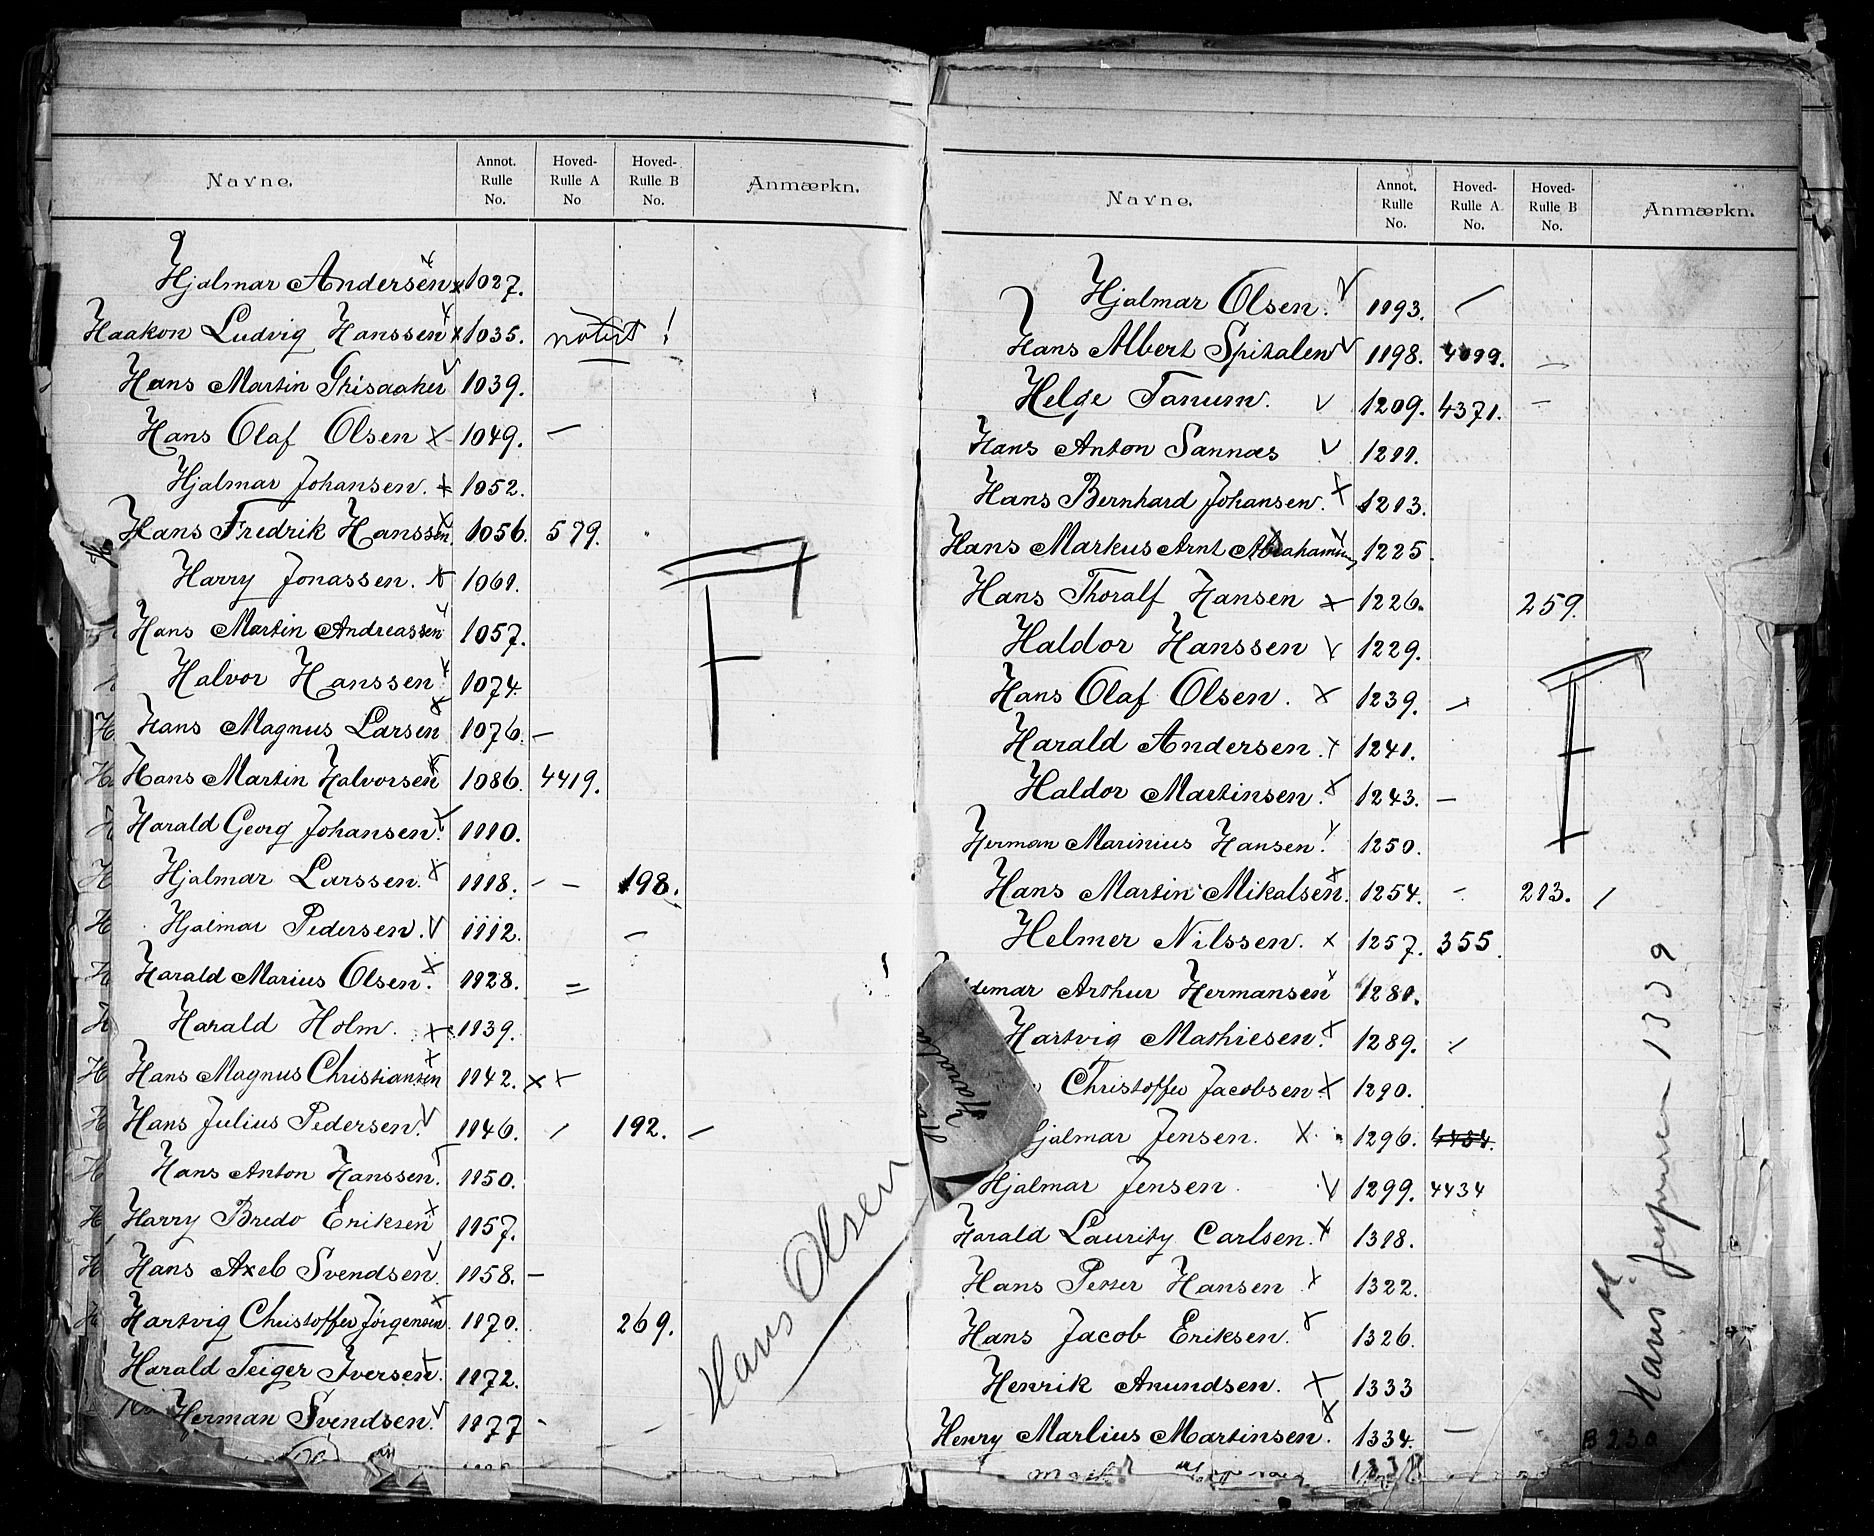 Navne. Annot. Rulle No. Hoved-Rulle A No Hoved-Rulle B No. Anmærkn.
Hjalmar Andersen x 1027.
Haakon Ludvig Hanssen x 1035. notert !
Hans Martin Grisaaker V 1039.
Hans Olaf Olsen x 1049. —
Hjalmar Johansen. x 1052.
Hans Fredrik Hanssen x 1056. 579.
Harry Jonassen. x 1061.
Hans Martin Andreassen 1057.
Halvor Hanssen 1074.
Hans Magnus Larsen x 1076. —
Hans Martin Halvorsen x 1086. 4419.
Harald Georg Johansen. 1110.
Hjalmar Larssen. x 1118. — — 198.
Hjalmar Pedersen. V 1112. —
Harald Marius Olsen. x 1128. =
Harald Holm. x 1139.
Hans Magnus Christiansen x 1142. x x
Hans Julius Pedersen. V 1146. / 192. —
Hans Anton Hanssen. 1150.
Harry Bredo Eriksen x 1157.
Hans Axel Svendsen. V 1158. —
Hartvig Christoffer Jörgensen. x 1170. 269.
Harald Teiger Iversen. x 1172.
Herman Svendsen. V 1177 -
Hans Olsen
Navne. Annot. Rulle No. Hoved-Rulle A No. Hoved-Rulle B No. Anmærkn.
Hjalmar Olsen. V 1193. —
Hans Albert Spitalen V 1198. 4099. —
Helge Tanum. V 1209. 4371. —
Hans Anton Sannæs V 1211.
Hans Bernhard Johansen. x 1213.
Hans Markus Arnt 1225.
Hans Thoralf Hansen x 1226. 259.
Haldor Hanssen V 1229.
Hans Olaf Olsen. x 1239. —
Harald Andersen. x 1241.
Haldor Martinsen. x 1243. —
Herman Marinius Hansen. 1250.
Hans Martin Mikalsen. x 1254. - 213. /
Helmer Nilssen. x 1257. 355.
demar Arthur Hermansen 1281.
Hartvig Mathiesen. x 1289. /
Christoffer Jacobsen. x 1290.
Hjalmar Jensen. x 1296. 4454.
Hjalmar Jensen. V 1299. 4434
Harald Lauritz Carlsen. x 1318.
Hans Petter Hansen x 1322.
Hans Jacob Eriksen. x 1326.
Henrik Amundsen. x 1333
Henry Marlius Martinsen. x 1334. — B 250
Harald
Hans Jespersen 1339